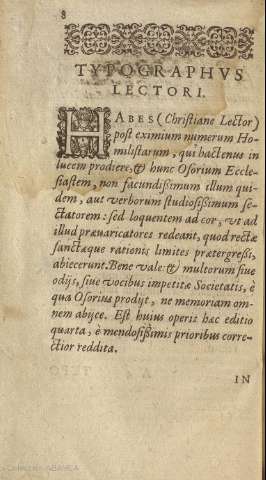 8
TYPOGRAPHVS
LECTORI.
HABES (Christiane Lector)
post eximium numerum Ho-
milistarum, qui hactenus in
lucem prodiere, & hunc Osorium Eccle-
siastem, non facundissimum illum qui-
dem, aut verborum studiosissimum se-
ctatorem: sed loquentem ad cor, vt ad
illud præuaricatores redeant, quod rectæ
sanctæque rationis limites prætergressi,
abiecerunt. Bene vale: & multorum siue
odijs, siue vocibus impetitæ Societatis, è
qua Osorius prodijt, ne memoriam om-
nem abijce. Est huius operis hæc editio
quarta, è mendosissimis prioribus corre-
ctior reddita.
IN